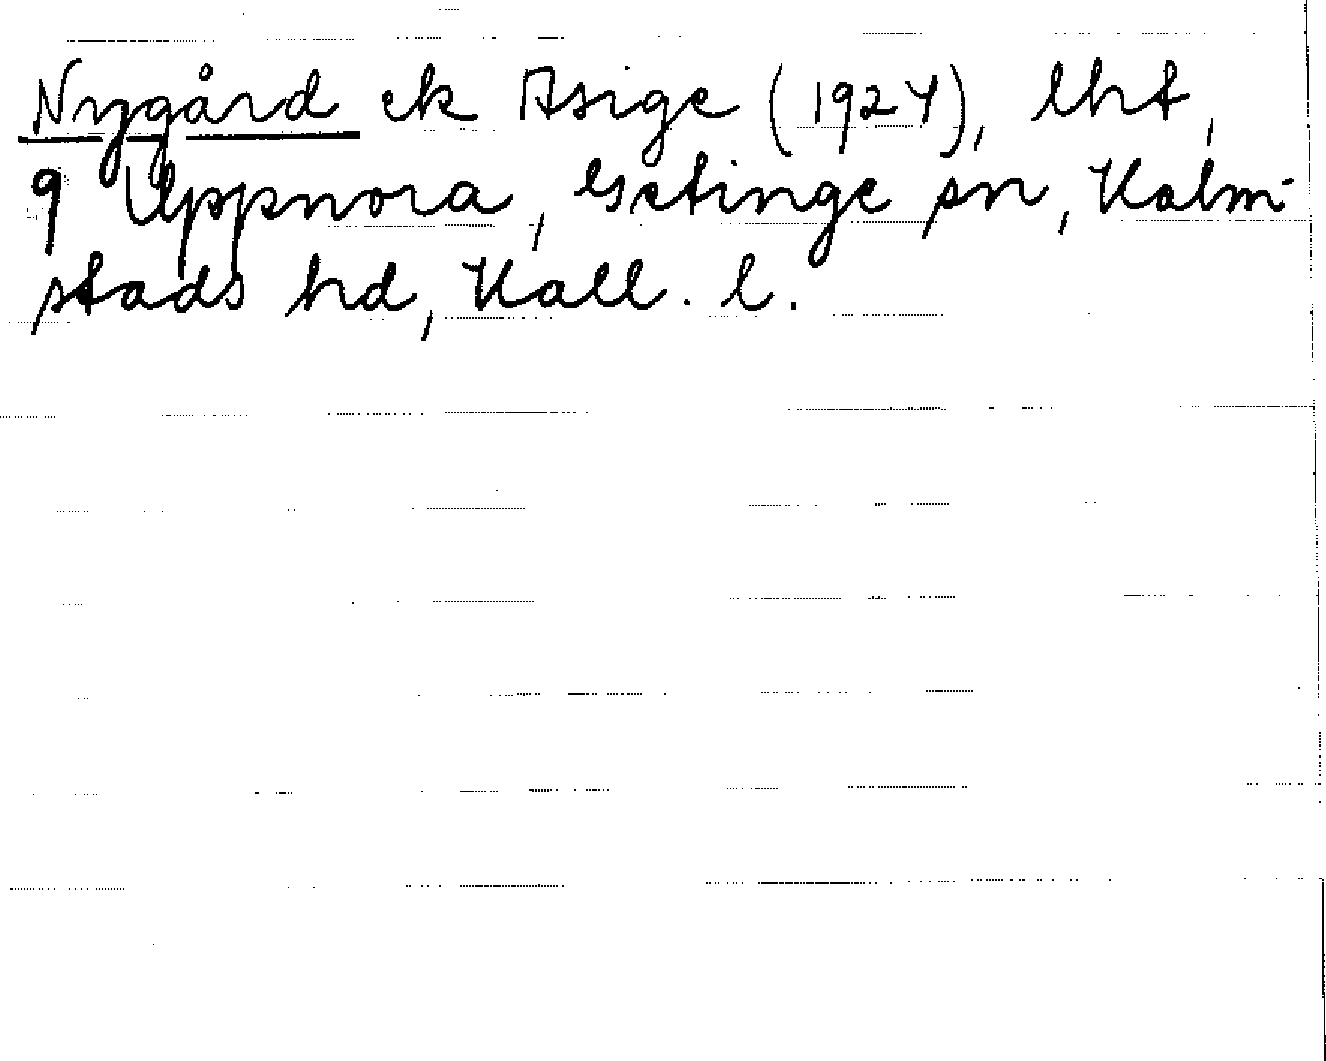 Nygård ek Asige (1924), lht,
9 Uppnora, Getinge sn, Halm-
stads hd, Hall. l.